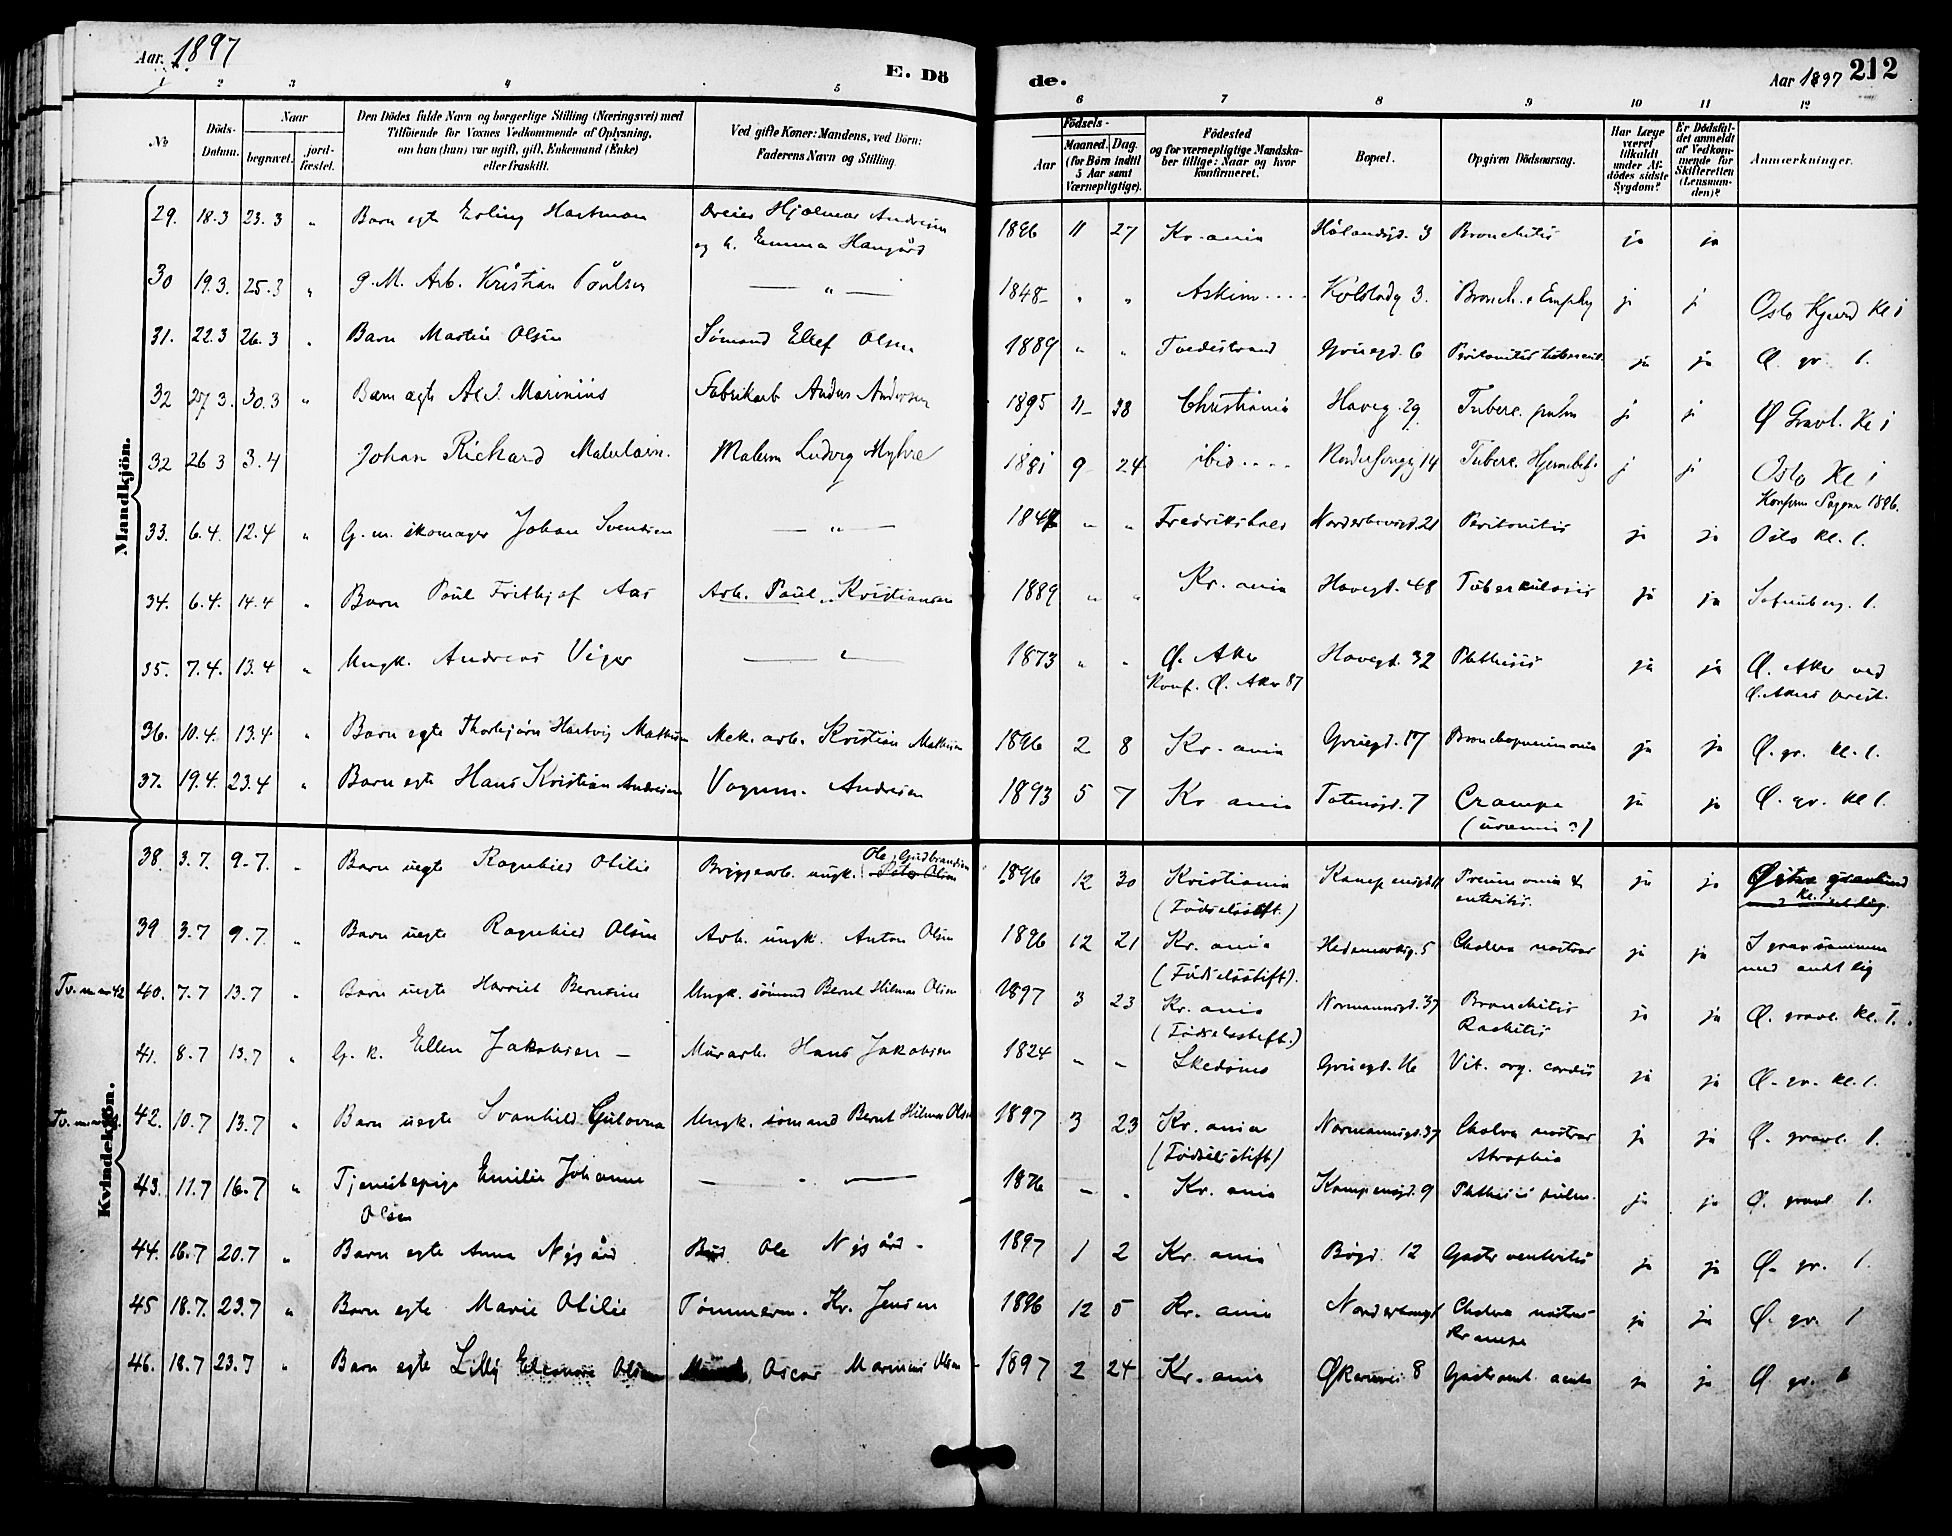 Aar. 1897
E. Dö
de.
Aar 1897
212
1 2 3 4 5
6 7 8 9 10 11 12
No
Döds-Datum.
Naar
begravet.
jord-fæstet.
Den Dödes fulde Navn og borgerlige Stilling (Næringsvei) med
Tilföiende for Voxnes Vedkommende af Oplysning,
om han (hun) var ugift, gift, Enkemand (Enke)
eller fraskilt.
Ved gifte Koner: Mandens, ved Börn:
Faderens Navn og Stilling.
Födsels-
Aar
Maaned. Dag.
(for Börn indtil
5 Aar samt
Værnepligtige).
Födested
og for værnepligtige Mandska-
ber tillige: Naar og hvor
konfirmeret.
Bopæl.
Opgiven Dödsaarsag.
Har Læge
været
tilkaldt
under Af-
dödes sidste
Sygdom?
Er Dödsfal-
det anmeldt
af Vedkom-
mende for
Skifteretten
(Lensman-
den)?
Anmærkninger.
Mandkjön.
29. 18.3 23.3 " Barn egte Erling Hartman Dreier Hjalmar Andresen 1896 11 27 Kr.ania 3 Bronchitis ja ja
og h. Emma
30 19.3. 25.3 " g.M. Arb. Kristian Poulsen — " — 1848 " " Askim Kolstadg 3. Bronch. & Emphy j j Oslo Kjærd Kl i
31. 22.3 26.3 " Barn Martin Olsen Sømand Ellef Olsen 1889 " " Tvedestrand Grüegd. 6 Peritonitis tubercul. ja ja Ø. gr. 1.
32 27 3. 30.3 " Barn ægte Marinius Fabrikarb Anders Andersen 1895 11 Christiania Haveg. 29. Tuberc. pulm j j Ø Gravl. Kl i
32 26 3 3.4 Johan Richard Malerlærl. Malerm Ludvig Myhre 1881 9 24 ibid 14 Tuberc. j j Oslo Kl i
Konfirm Sagene 1896.
33. 6.4. 12.4 " G.m. skomager Johan Svendsen — " — " " Peritonitis ja ja Oslo kl. 1.
34. 6.4. 14.4 " Barn Poul Frithjof Aas Arb. Poul Kristiansen 1889 " " Kr.ania Havegd. 48 Tuberkulosis ja ja 1.
35. 7.4. 13.4 " Ungk. Andreas — " — 1873 " " Ø. Aker Havegd. 32 Phthisis ja ja Ø. Aker ved
Konf. Ø. Aker 87
Ø. Akers prest.
36. 10.4. 13.4 " Barn egte Thorbjørn Hartvig Mathisen Mek. arb. Kristian Mathisen 1896 2 8 Kr.ania Grüegd. 17 Bronchopneumonia ja ja Ø. gr. kl. 1.
37. 19.4. 23.4 " Barn egte Hans Kristian Andresen Vognm. Andresen 1893 5 7 Kr ania Totensgd. 7 Crampe ja ja Ø. gr. kl 1.
(uræmi?)
Kvindekjön.
38. 3.7. 9.7. " Barn uegte Ragnhild Otilie Bryggearb. ungk. Ole Gudbrandsen 1896 12 30 Kristiania Pneumonia & ja ja
(Fødselsstift.) enteritis.
39 3.7 9.7. " Barn uegte Ragnhild Olsen Arb. ungk. Anton Olsen 1896 12 21 Kr.ania Hedemarksg. 5 Cholera nostras ja ja I grav sammen
(Fødselsstift). med andet lig
40. 7.7 13.7 " Barn uegte Harriet Berntine Ungk. sømand Bernt Hilmar Olsen 1897 3 23 Kr.ania Normannsgd. 37 Bronchitis ja ja Ø. gravl. kl. 1.
(Fødselsstift.) Rachitis
41. 8.7 13.7 " G.k. Ellen Jakobsen — Murarb. Hans Jakobsen 1824 — — Skedsmo Grüegd. 16 Vit. org. cordis ja ja Ø. gr. kl. 1.
42. 10.7 13.7 " Barn uegte Svanhild Ungk. sømand Bernt Hilmar Olsen 1897 3 23 Kr.ania Normannsgd. 37 Cholera nostras ja ja Ø. gravl. 1.
(Fødselsstift) Atrophia
43. 11.7 16.7 " Tjenestepige Emilie Johanne — " — 1876 — " Kr.ania Kampensgd. 9 Phthisis pulm. ja ja Ø. gravl 1.
Olsen
44. 16.7 20.7 " Barn egte Anna Nygård Bud Ole Nygård 1897 1 2 Kr.ania Bøgd. 12 Gastroenteritis ja ja Ø. gr. 1.
45 18.7. 23.7 " Barn egte Marie Otilie Tømmerm. Kr. Jensen 1896 12 5 Kr.ania Cholera nostras ja ja Ø. gr. 1
Krampe
46. 18.7 23.7 " Barn egte Lilly Eleonore Olsen Oscar Marinius Olsen 1897 2 24 Kr.ania Økernvei 8 Gastroent. acuta ja ja Ø. gr. 1